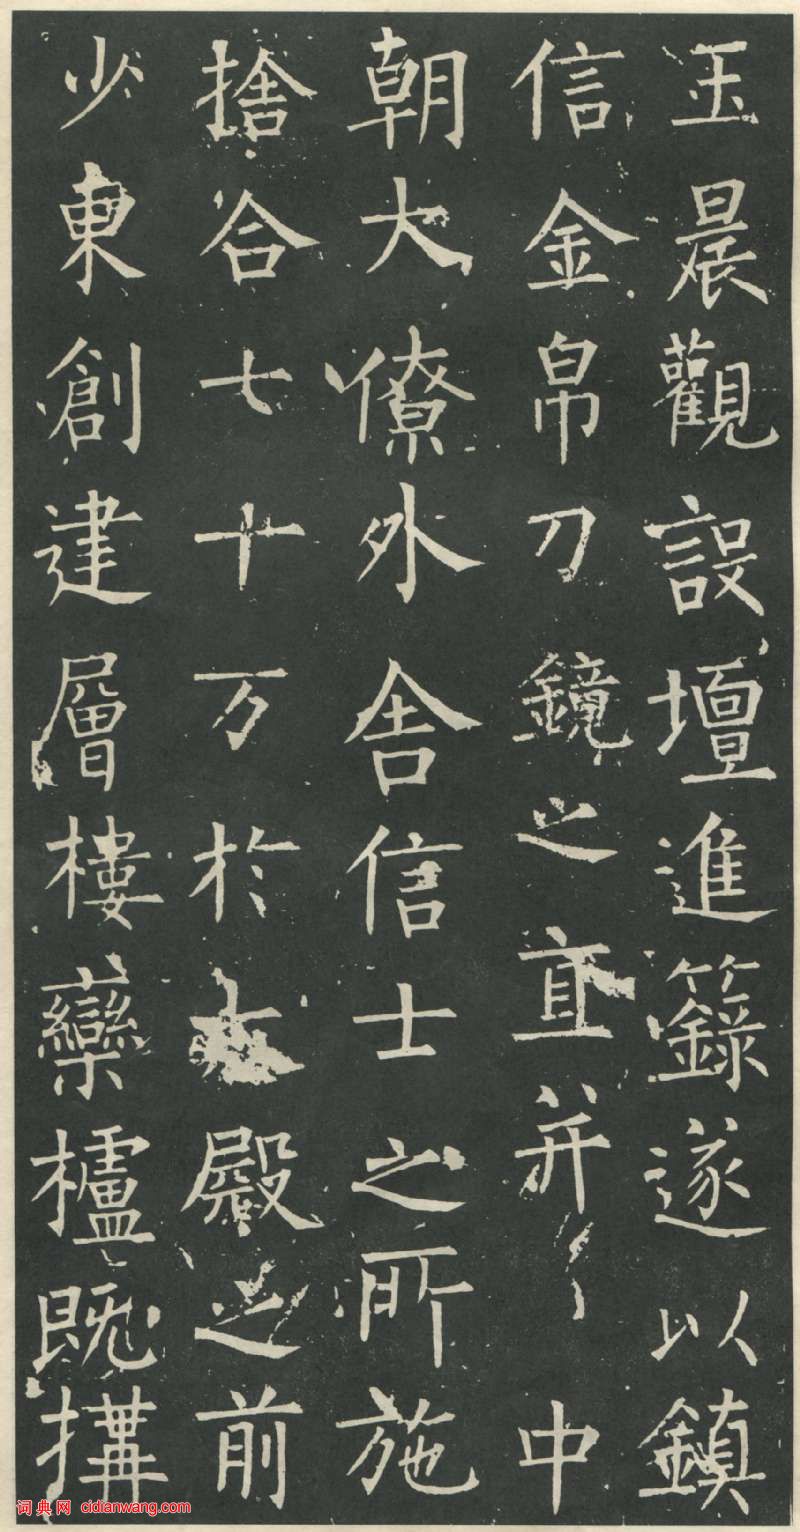 玉晨觀設壇進籙遂以鎮
信金帛刀鏡之直并中
朝大僚外舎信士之所施
捨合七十万於大殿之前
少東創建層樓欒櫨既搆
词典网 cidianwang.com